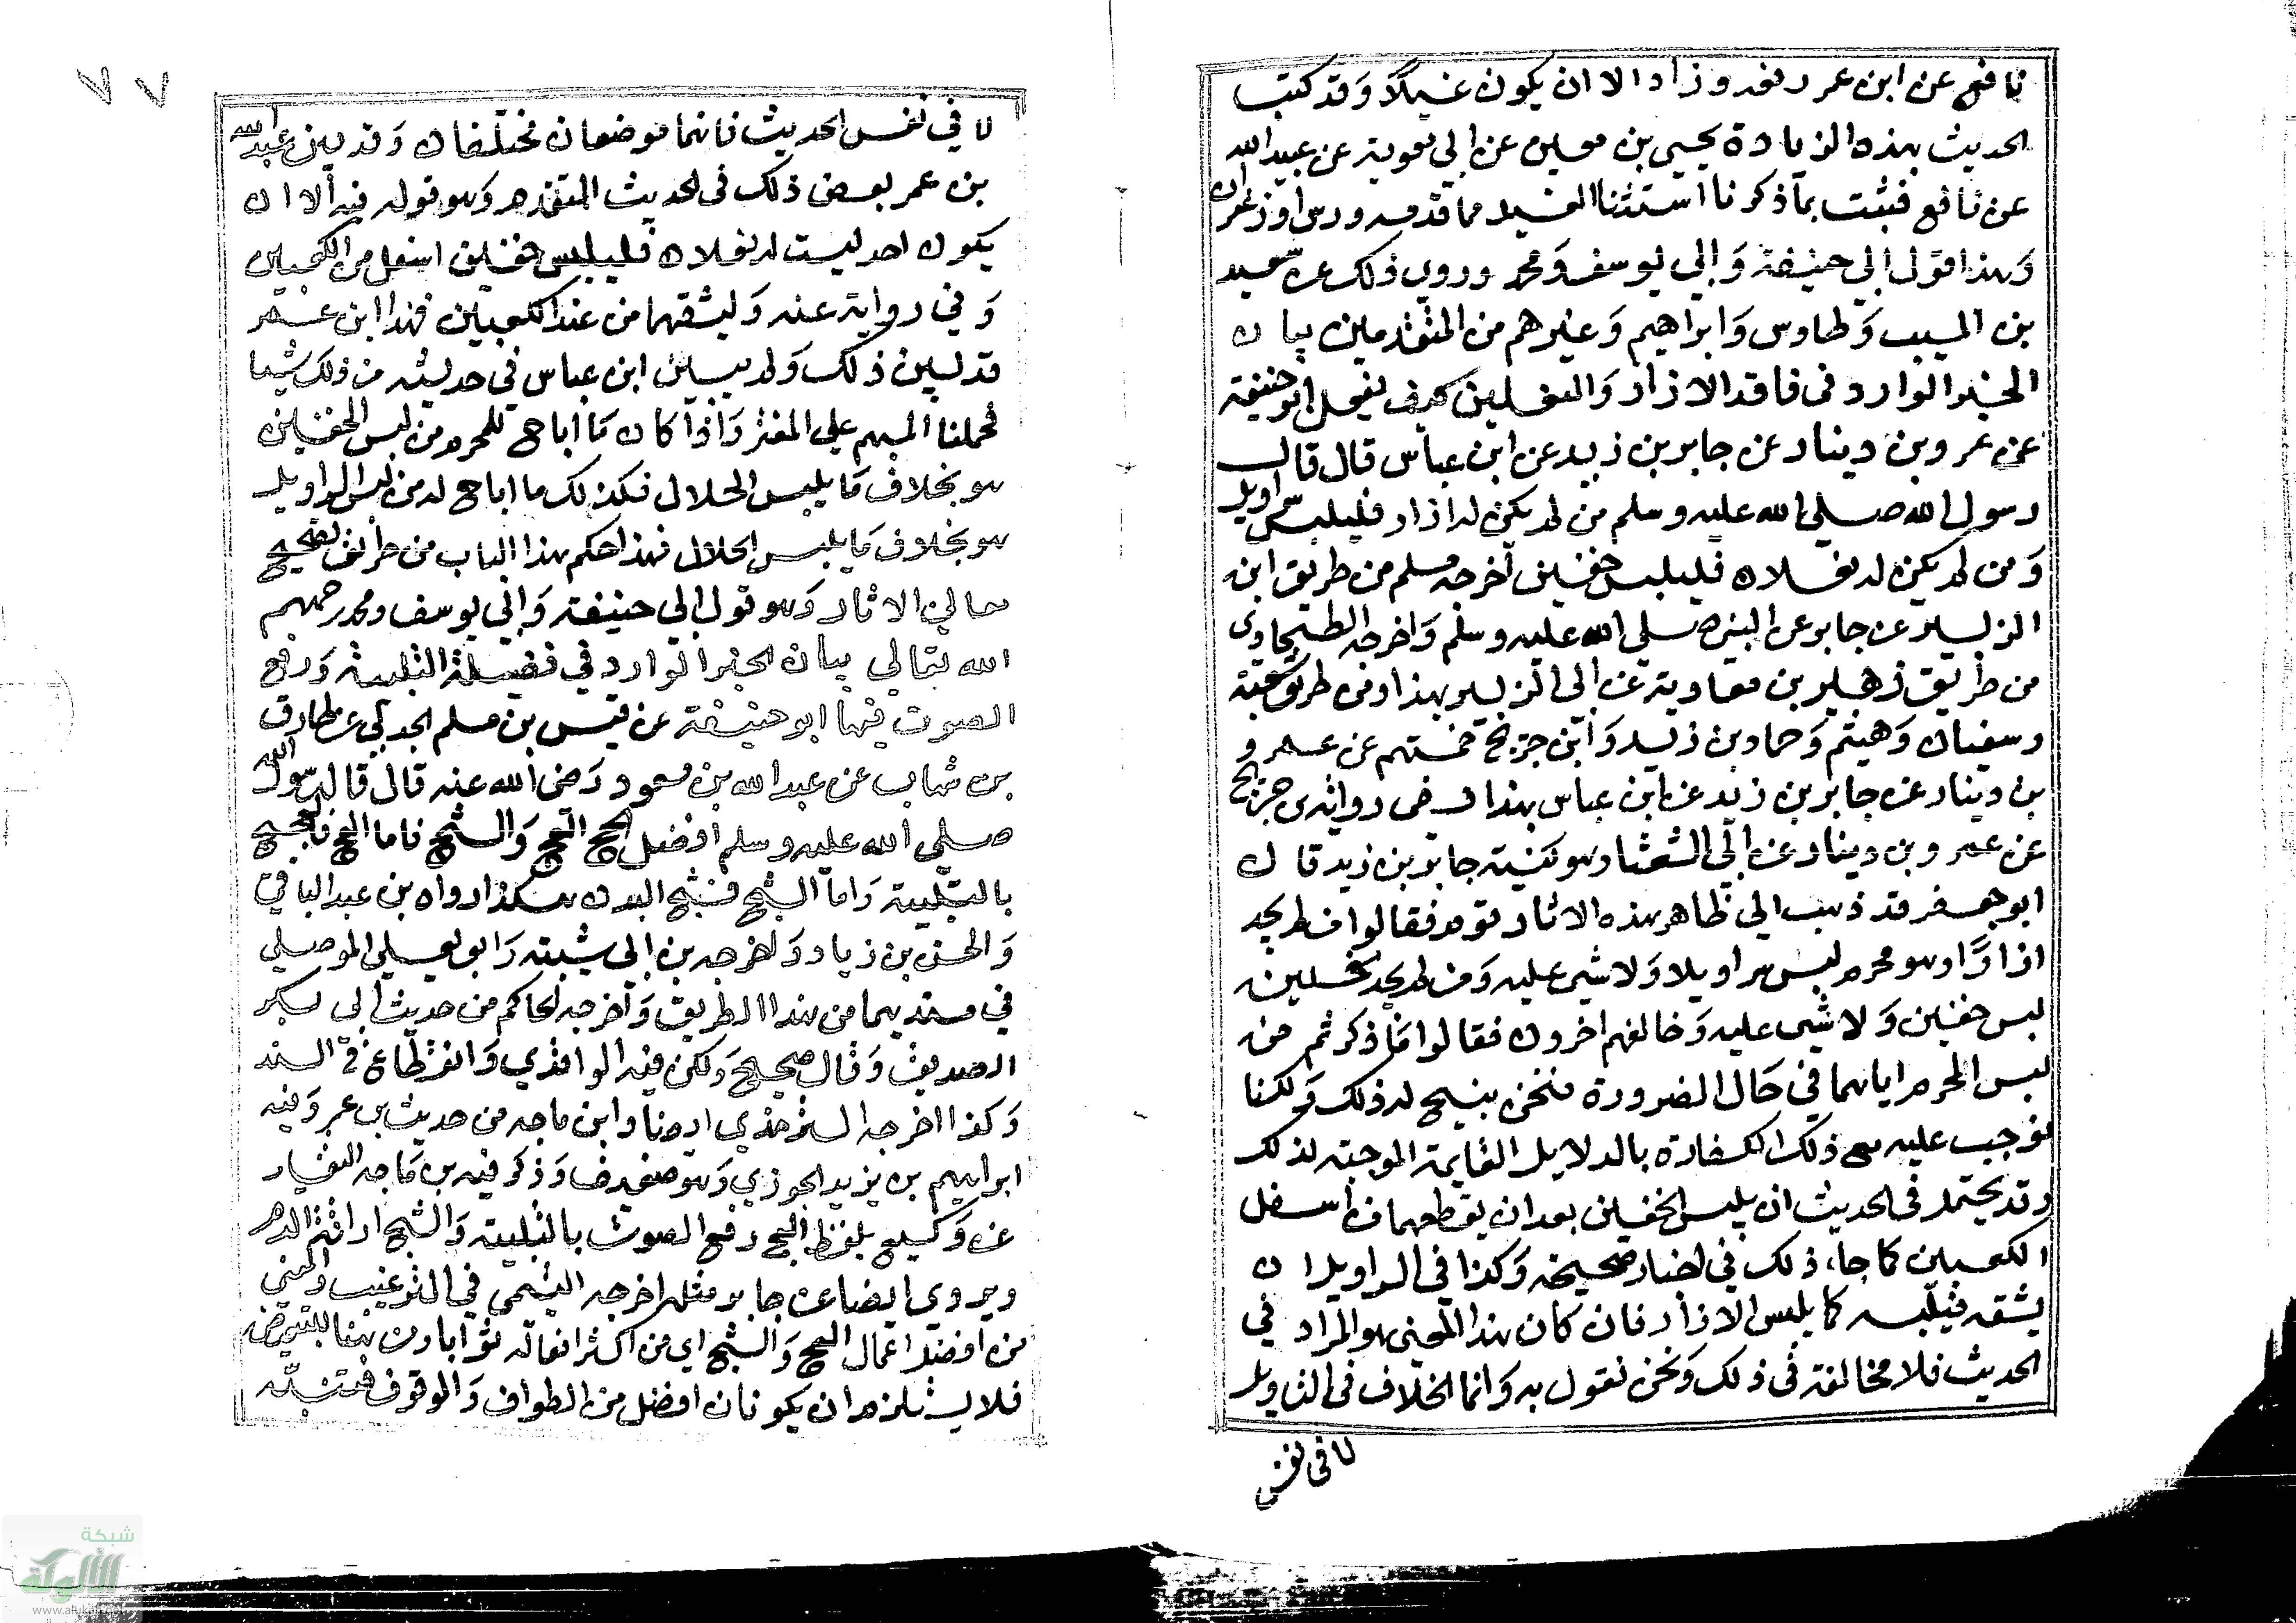 نافع عن ابن عمر رفعه وزاد الا ان يكون غسيلاً وقد كتب
الحديث بهذه الزيادة يحيى بن معين عن ابي معوية عن عبيد الله
عن نافع فثبت بما ذكرنا استثنا الغسيل مما قد مسه ورس او زعفران
وهذا قول ابي حنيفة وابي يوسف ومحمد وروى ذلك عن سعيد
بن المسيب وطاوس وابراهيم وغيرهم من المتقدمين بيان
الخبر الوارد فى فاقد الازار والنعلين كيف يفعل ابو حنيفة
عن عمرو بن دينار عن جابر بن زيد عن ابن عباس قال قال
رسول الله صلي الله عليه وسلم من لم يكن له ازار فليلبس سراويل
ومن لم يكن له نعلان فليلبس خفين اخرجه مسلم من طريق ابن
الزبير عن جابر عن النبي صلي الله عليه وسلم واخرجه الطحاوى
من طريق زهير بن معاوية عن ابى الزبير بهذا ومن طريق شعبة
وسفيان وهيثم وحماد بن زيد وابن جريج خمستهم عن عمرو
بن دينار عن جابر بن زيد عن ابن عباس بهذا وفى رواية بن جريج
عن عمرو بن دينار عن ابي الشعثا وهو كنية جابر بن زيد قال
ابو جعفر قد ذهب الى ظاهر هذه الاثار قوم فقالوا من لم يجد
ازارًا وهو محرم لبس سراويلا ولا شى عليه ومن لم يجد نعلين
لبس خفين ولا شى عليه وخالفهم اخرون فقالوا ما ذكرتم من
لبس المحرم اياهما في حال الضرورة فنحن نبيح له ذلك ولكنا
نوجب عليه مع ذلك الكفارة بالدلايل القايمة الموجبة لذلك
وقد يحتمل فى الحديث ان يلبس الخفين بعد ان يقطعهما من اسفل
الكعبين كما جاء ذلك في اخبار صحيحة وكذا فى السراويل ان
يشقه فيلبسه كما يلبس الازار فان كان هذا المعنى هو المراد في
الحديث فلا مخالفة فى ذلك ونحن نقول به وانما الخلاف فى التاويل
لا فى نفس
٧٧
لا في نفس الحديث فانهما موضعان مختلفان وقد بين عبد الله
بن عمر بعض ذلك فى الحديث المتقدم وهو قوله فيه الا ان
يكون احد ليست له نعلان فليلبس خفين اسفل من الكعبين
وفي رواية عنه وليشقهما من عند الكعبين فهذا ابن عمر
قد بين ذلك ولم يبين ابن عباس في حديثه من ذلك شيا
فحملنا المبهم على المفسر واذا كان ما اباح للمحرم من لبس الخفين
هو بخلاف ما يلبس الحلال فكذلك ما اباح له من لبس السراويل
هو بخلاف ما يلبس الحلال فهذا حكم هذا الباب من طريق تصحيح
معاني الاثار وهو قول ابي حنيفة وابي يوسف ومحمد رحمهم
الله تعالي بيان الخبر الوارد في فضيلة التلبية ورفع
الصوت فيها ابو حنيفة عن قيس بن مسلم الجدلي عن طارق
بن شهاب عن عبد الله بن مسعود رضى الله عنه قال قال رسول الله
صلى الله عليه وسلم افضل الحج العج والثج فاما العج فالعجيج
بالتلبية واما الثج فثج البدن هكذا رواه بن عبد الباقي
والحسن بن زياد واخرجه بن ابي شيبة وابو يعلي الموصلي
في مسنديهما من هذا الطريق واخرجه الحاكم من حديث ابى بكر
الصديق وقال صحيح ولكن فيه الواقدي وانقطاع فى السند
وكذا اخرجه الترمذي ايضا وابن ماجه من حديث بن عمر وفيه
ابراهيم بن يزيد الجوزي وهو ضعيف وذكر فيه بن ماجه التفسير
عن وكيع بلفظ العج رفع الصوت بالتلبية والثج اراقة الدم
ويروي ايضا عن جابر مثله اخرجه التيمي في الترغيب والمعنى
من افضل اعمال الحج العج والثج اي من اكثر افعاله ثوابا ومن هنا للتبعيض
فلا يستلزم ان يكونان افضل من الطواف والوقوف فتنبه
شبكة
الألوكة